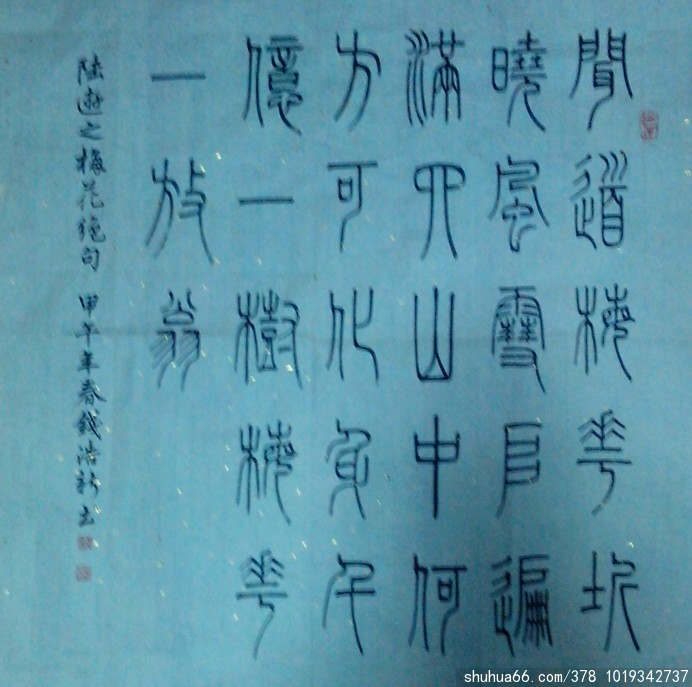 聞道梅花坼
曉風雪𠂤遍
滿四山中何
方可化身千
億一樹梅花
一放翁
陸遊之梅花絕句 甲午年春錢浩书
shuhua66.com/378 1019342737